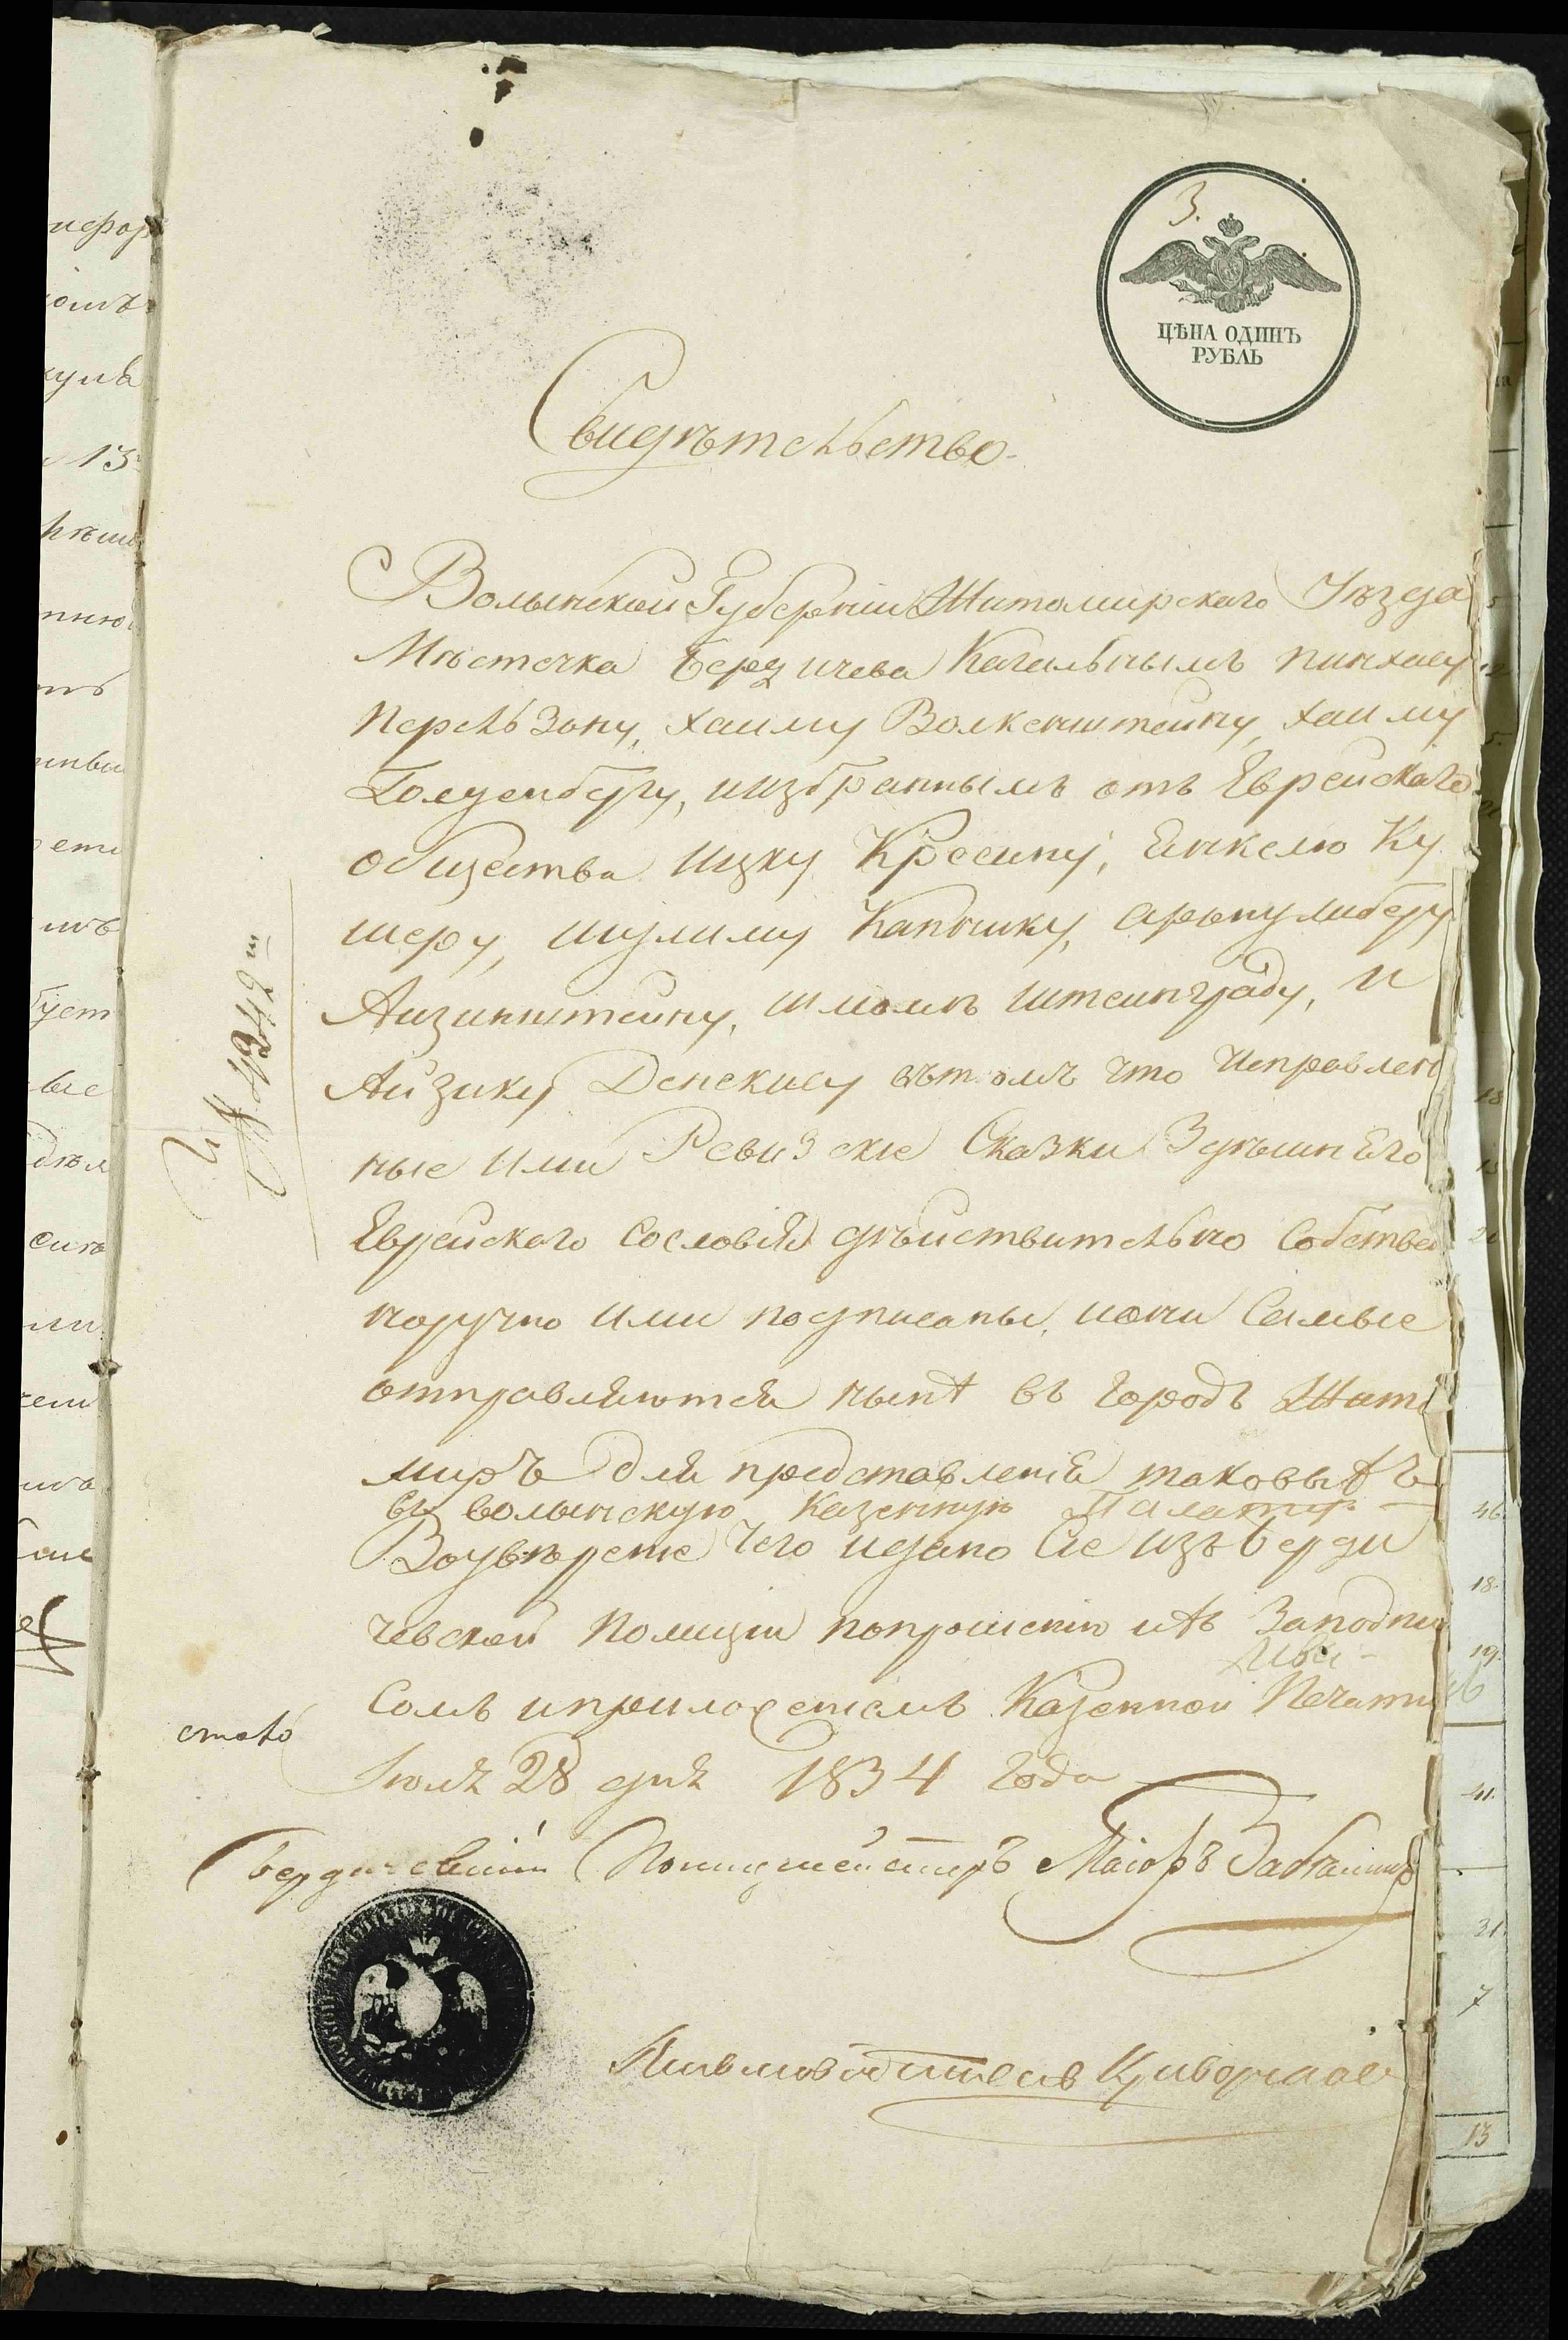 3.
ЦѢНА ОДИНЪ
РУБЛЬ
Свидѣтельство
Волынской Губерніи Житомирского Уѣзда
Мѣстечка Бердичева Кагальнымъ пинхасу
Перельзону, хаиму Волкенштейну, хаиму
Голденбергу, иизбраннымъ отъ Еврейскаго
общества Ицку Кресину, Енкелю Ку
шеру, шулиму Капнику, арону либеру
Аизинштейну, шломѣ Штеинграду, и
Айзику Денскису вътомъ что Исправлен
ные Ими Ревизские Сказки Здѣшнего
Еврейского Сословія дѣйствительно Собствен
норучно Ими подписаны, иони Самые
отправляются нынѣ въ городъ Жито
миръ для представленія таковыхъ
въ волынскую Казенную Палату
Воувѣрение Чего идано Сие изъ Берди
чевской Полиціи попрошенію ихъ Заподпи
Сомъ иприложениемъ Казенной Печати
Іюля 28 дня 1834 Года
Бердичевскій Полицмейстеръ Маіоръ
Письмоводитель
№ 4242